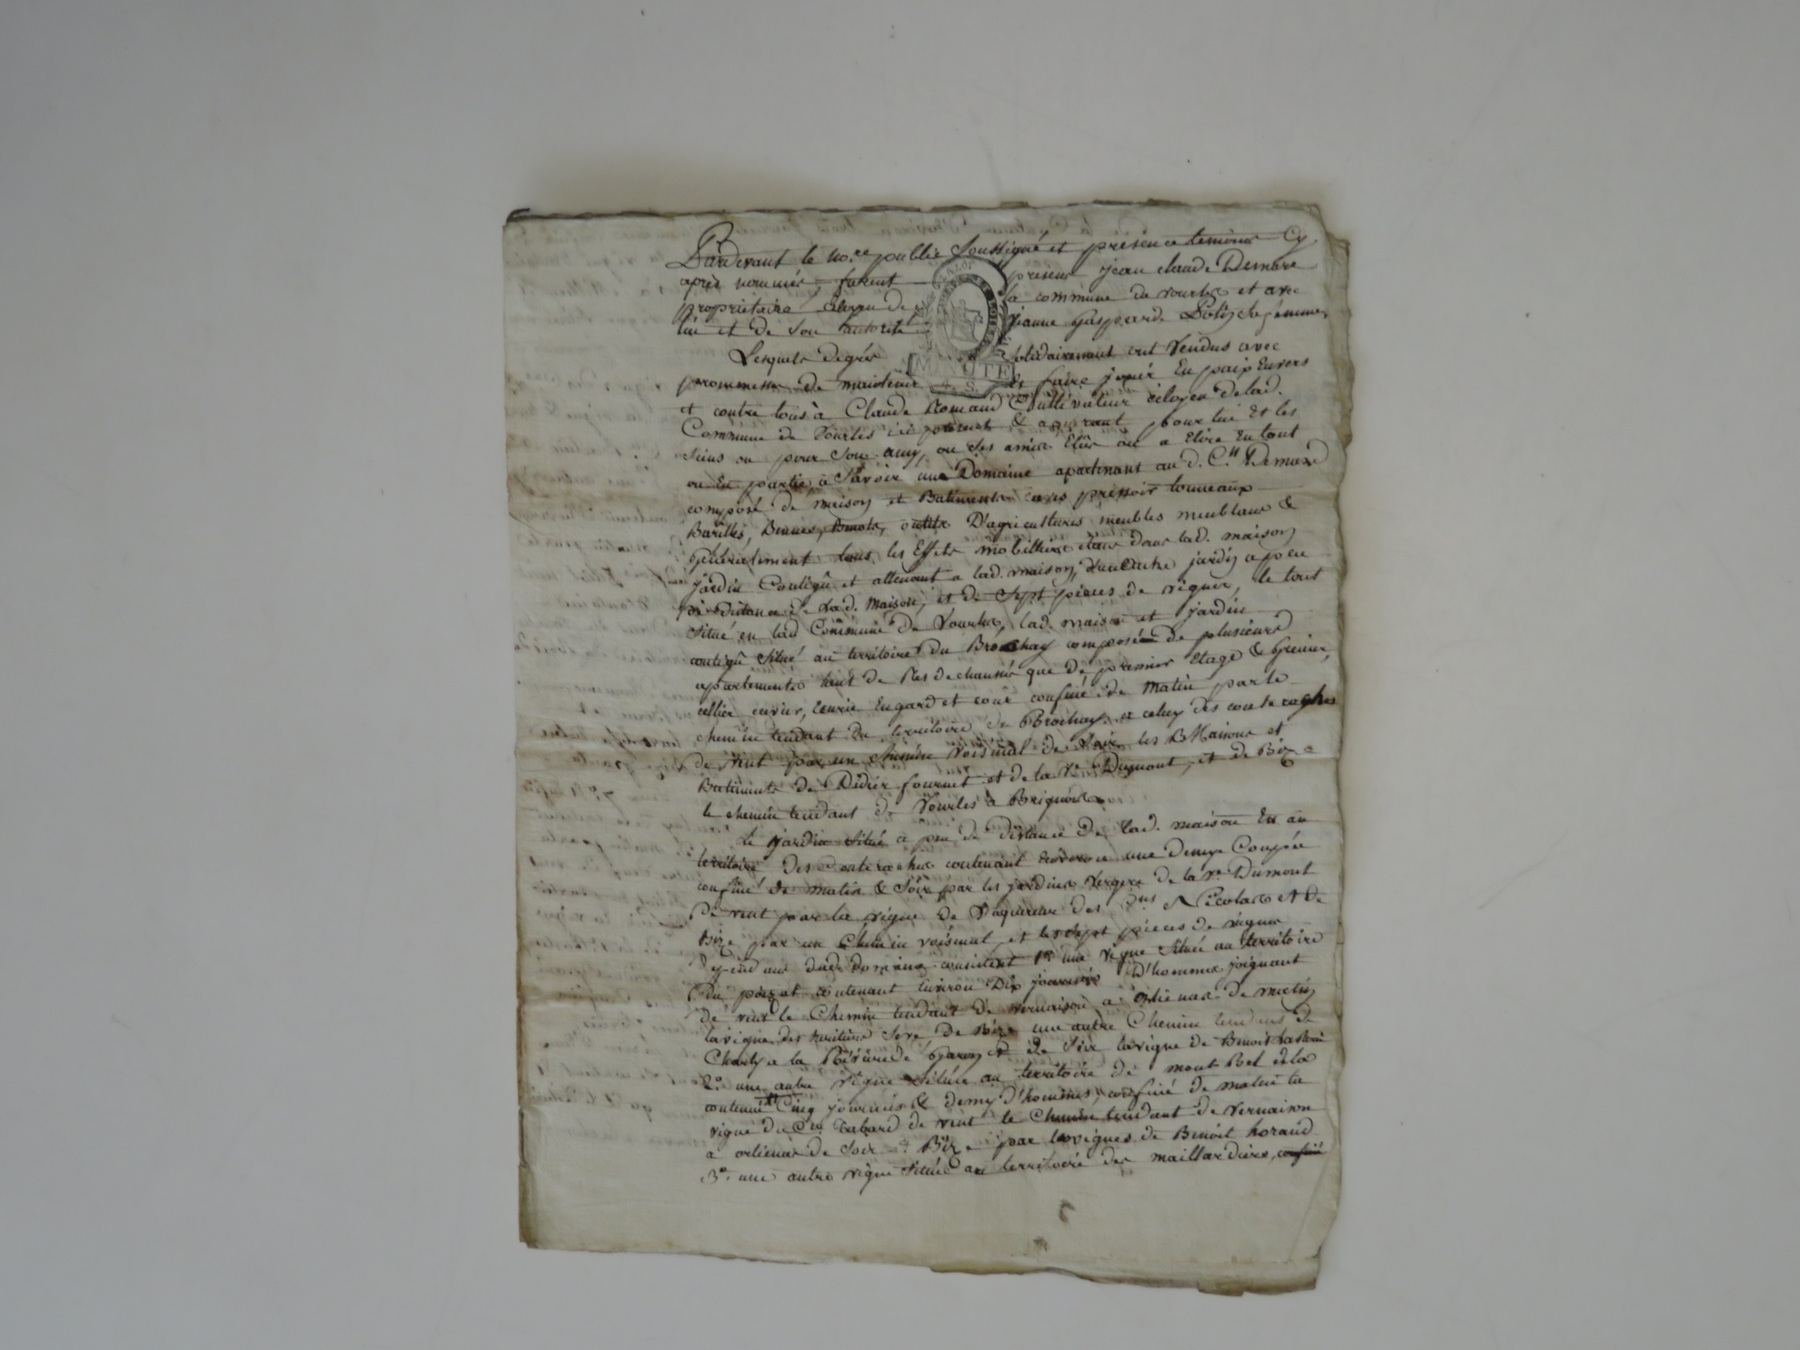 Pardevant le no.re public Soussigné et présence temoins Cy
après nommés, furent présens jean claude Demare
propriétaire citoyen de la commune de vourles et avec
lui et de son autorité jeanne Gasparde femme
Lesquels de gré solidairement ont Vendus avec
promesse de maintenir Et faire jouir En paix Envers
et contre tous à Claude Romand Cultivateur citoyen de lad.
Commune de Vourles ici présent & acqurant pour lui Et les
siens ou pour son amy, ou ses amis Elus ou a Elire En tout
ou En partie, à Savoir une Domaine apartenant au d. C.en Demare
composé de maison et Batiments caves pressoir tonneaux
Barilles, Bennes, outils D'agricultures meubles meublans &
Généralement tous les Effets mobilliers étans dans lad. maison
jardin Contigû et attenant a lad. maison, d'un autre jardin a peu
de distance de lad. maison, et de Sept pièces de vignes, le tout
situé en lad Commune de Vourles, lad. maison et jardin
contigû situé au territoire du Brochay composée de plusieurs
apartements tant de Rés de chaussé que de premier Etage & Grenier,
cellier cuvier, Ecurie Engard et cour confiné de Matin par le
chemin tendant du territoire de Brochay a celuy des contterraches
de Vent par un chemin voisinal de Soir les Maisons et
Batiments de Didier fournet et de la Ve Dumont, et de Bize
le chemin tendant de Vourles à Brignais.
Le jardin situé à peu de distance de lad. maison Est au
territoire des contenant Environ une demye Coupée
confiné de matin & Soir par les jardins vergers de la Ve Dumont
De vent par la vigne de des Nicolas Et de
Bize par un Chemin voisinal, et les sept pièces de vignes
dud domaine consistent 1° une Vigne située au territoire
du contenant Environ Dix journés d'hommes joignant
de vent le Chemin tendant de vernaison a Orlienas de matin
la vigne des Seve, de Bize un autre Chemin tendant de
Charly a la Rivière de Garon Et de Soir la vigne de Benoit
2° une autre vigne située au territoire de mont
contenant Cinq journés & demy d'hommes, confiné de matin la
vigne du C.en Tabard de vent le Chemin tendant de vernaison
a orlienas de Soir & Bize par les vignes de Benoit
3° une autre vigne située au territoire des maillardières, confiné
MINUTE